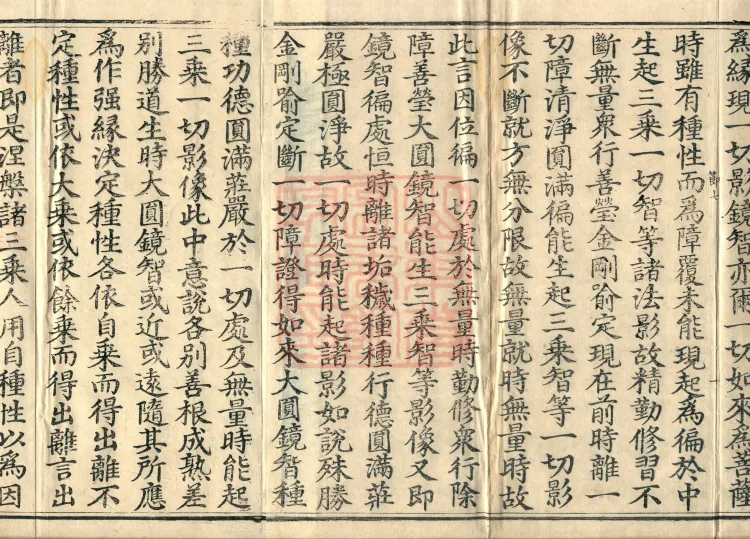 為縁現一切影鏡智亦爾一切如來為菩薩
時雖有種性而為障覆未能現起為徧於中
生起三乗一切智等諸法影故精勤修習不
斷無量衆行善瑩金剛喻定現在前時離一
切障清淨圓滿徧能生起三乗智等一切影
像不斷就方無分限故無量就時無量時故
此言因位徧一切處於無量時勤修衆行除
障善瑩大圓鏡智能生三乗智等影像又即
鏡智徧處恒時離諸垢穢種種行德圓滿莊
嚴極圓淨故一切處時能起諸影如說殊勝
金剛喻定斷一切障證得如來大圓鏡智種
種功德圓滿莊嚴於一切處及無量時能起
三乗一切影像此中意說各別善根成熟差
別勝道生時大圓鏡智或近或遠隨其所應
為作强縁決定種性各依自乗而得出離不
定種性或依大乗或依餘乗而得出離言出
離者即是涅槃諸三乗人用自種性以為因